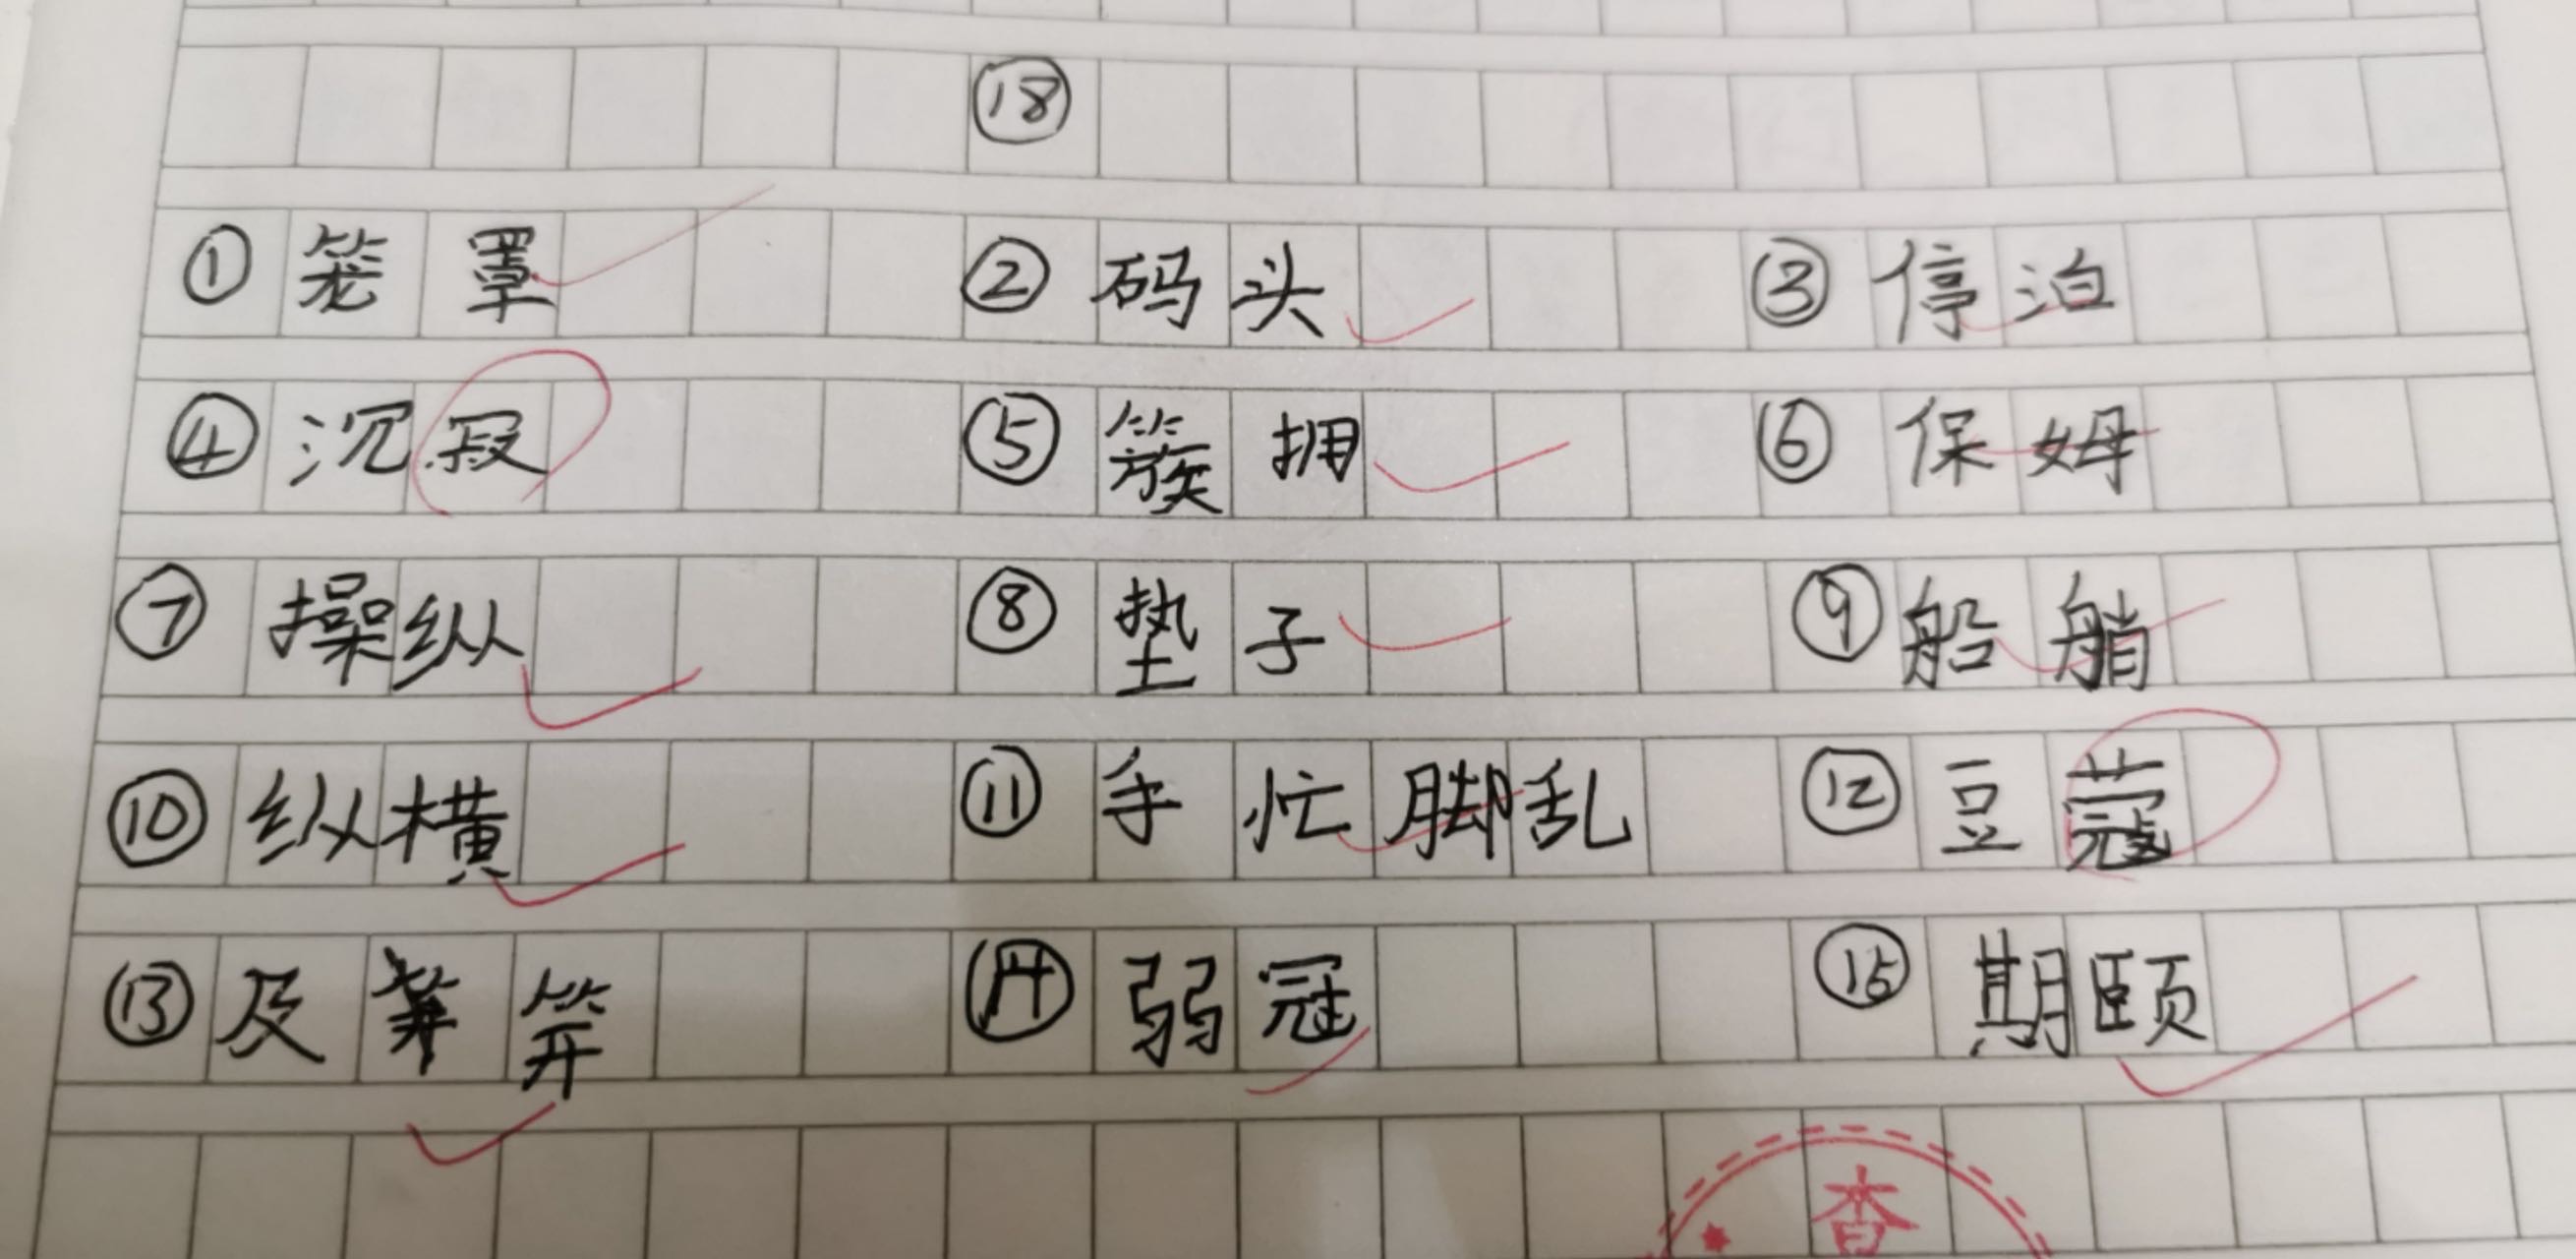 ⑱
①笼罩 ②码头 ③停泊
④沉寂 ⑤簇拥 ⑥保姆
⑦操纵 ⑧垫子 ⑨船艄
⑩纵横 ⑪手忙脚乱 ⑫豆蔻
⑬及笄 ⑭弱冠 ⑮期颐
查